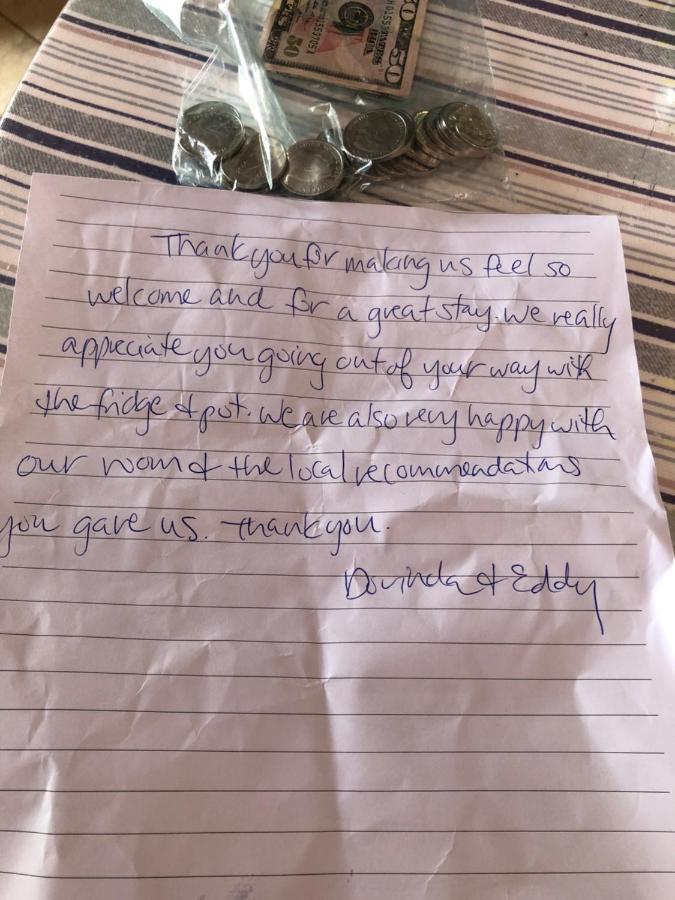 50
50
Thank you for making us feel so
welcome and for a great stay. We really
appreciate you going out of your way with
the fridge & pot. We are also very happy with
our room & the local recommendations
you gave us. Thank you.
Dorinda & Eddy